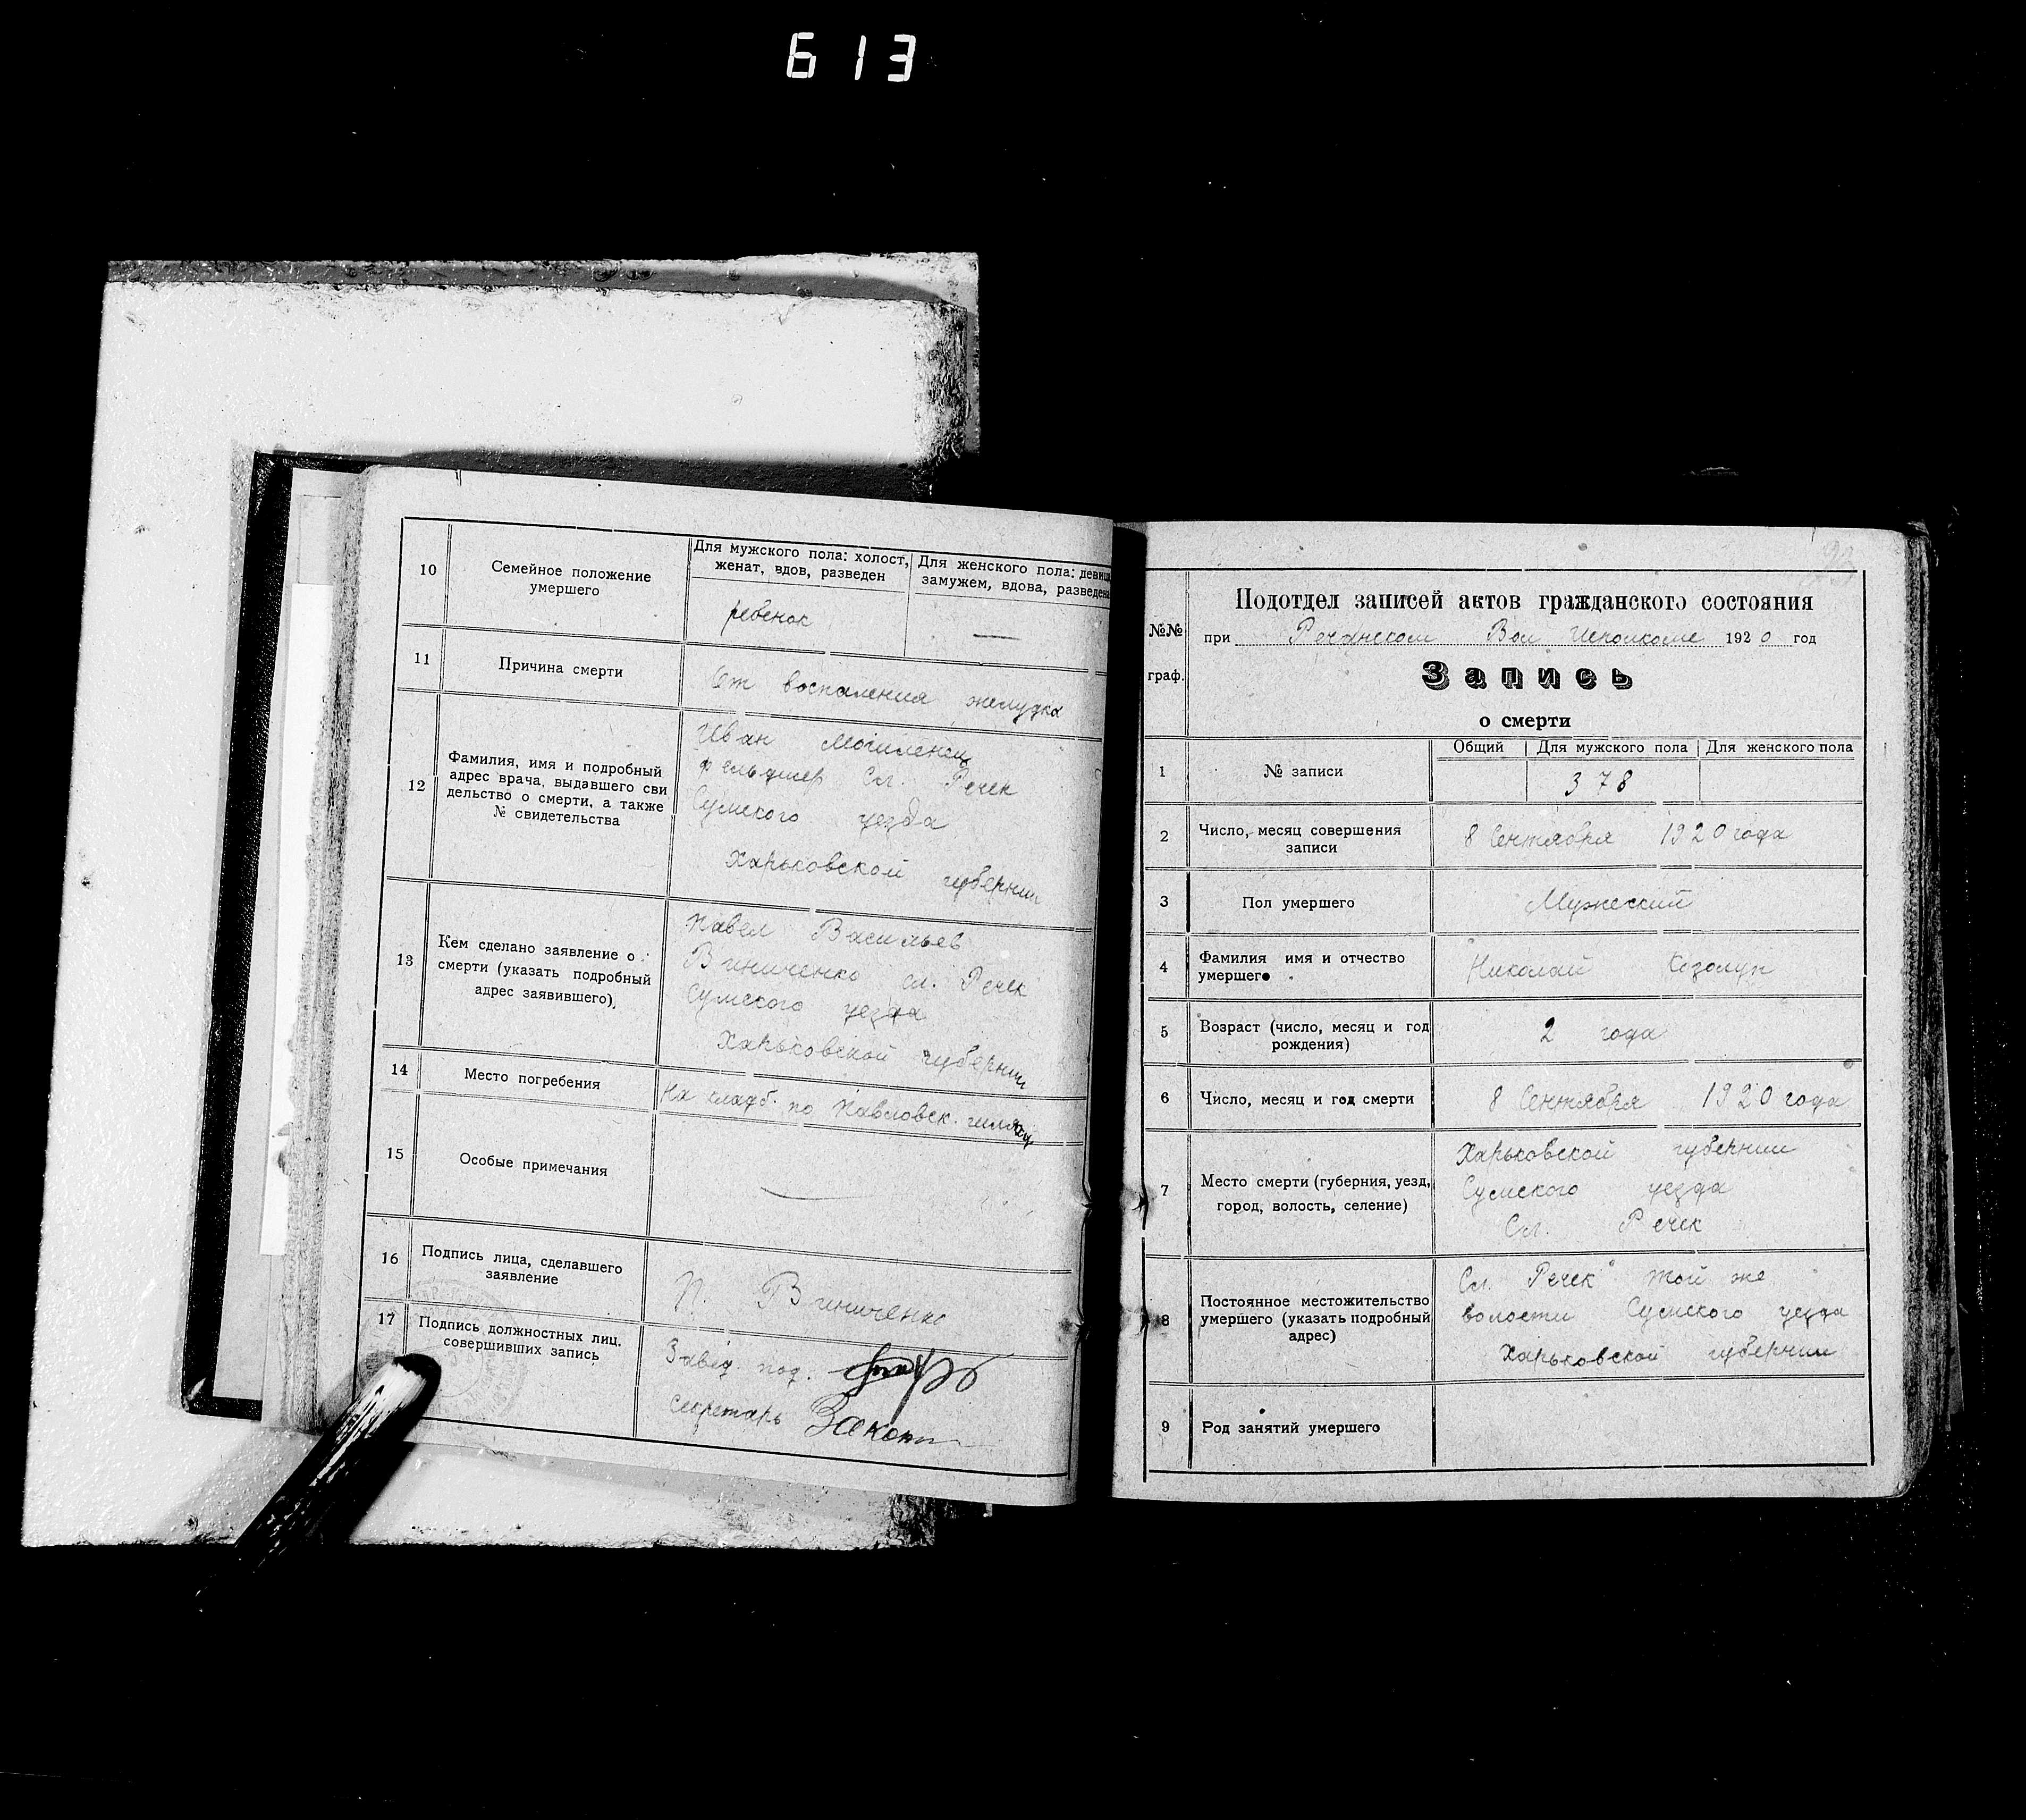 613
10
Семейное положение
умершего
Для мужского пола: холост,
женат, вдов, разведен
Для женского пола: девица
замужем, вдова, разведена
ребенок
11
Причина смерти
От воспаления желудка
12
Фамилия, имя и подробный
адрес врача, выдавшего сви
дельство о смерти, а также
№ свидетельства
Иван
фельдшер Сл. Речек
Сумского уезда
Харьковской губернии
13
Кем сделано заявление о
смерти (указать подробный
адрес заявившего).
Павел Васильев
Виниченко сл. Речек
Сумского уезда
Харьковской губернии
14
Место погребения
На кладб. по Павловск.
15
Особые примечания
16
Подпись лица, сделавшего
заявление
П. Виниченко
17
Подпись должностных лиц,
совершивших запись
Завед. под.
Секретарь
№№
граф.
Подотдел записей актов гражданского состояния
при Речанском Вол Исполкоме 1920 год
Запись
о смерти
1
№ записи
Общий
Для мужского пола
Для женского пола
378
2
Число, месяц совершения
записи
8 Сентября 1920 года
3
Пол умершего
Мужеский
4
Фамилия имя и отчество
умершего
Николай Козолуп
5
Возраст (число, месяц и год
рождения)
2 года
6
Число, месяц и год смерти
8 Сентября 1920 года
7
Место смерти (губерния, уезд,
город, волость, селение)
Харьковской губернии
Сумского уезда
Сл. Речек
8
Постоянное местожительство
умершего (указать подробный
адрес)
Сл. Речек той же
волости Сумского уезда
Харьковской губернии
9
Род занятий умершего